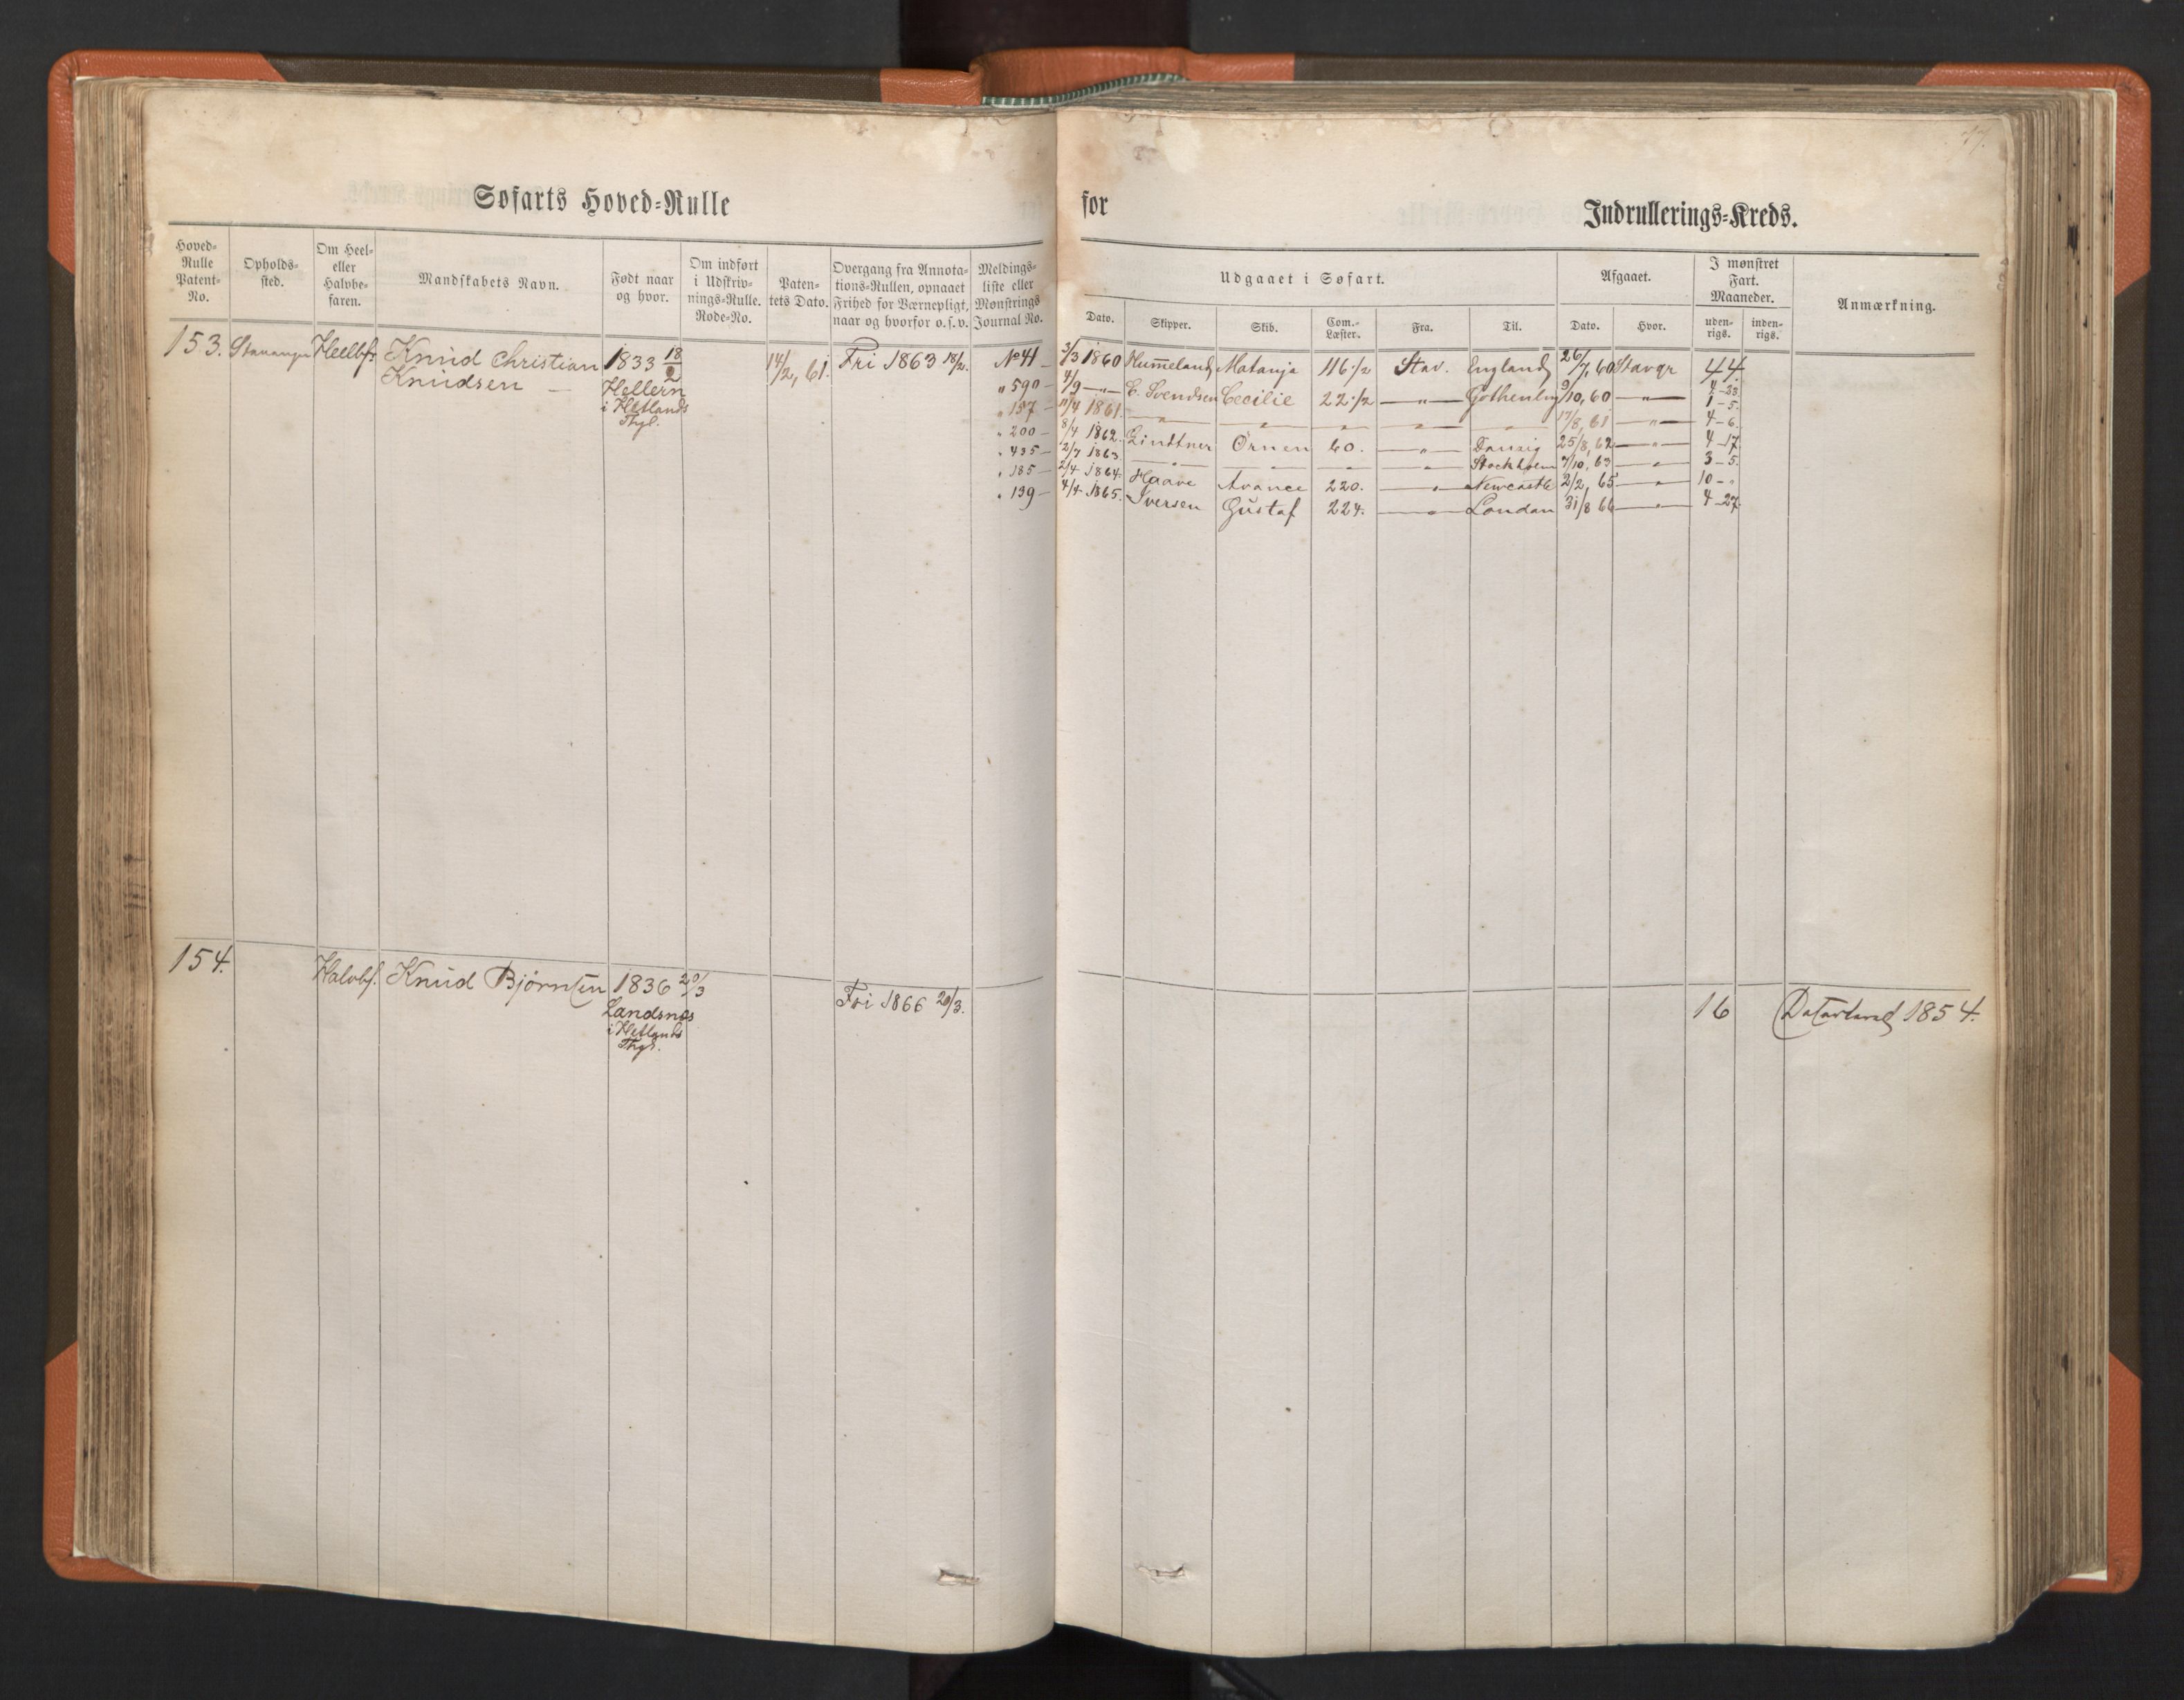 Søfarts Hoved-Rulle for Indrullerings-Kreds.
Hoved-Rulle Patent-No.
Opholds-sted.
Om Heel- eller Halvbe-faren.
Mandskabets Navn.
Født naar og hvor.
Om indført i Udskriv-nings-Rulle. Rode-No.
Paten-tets Dato.
Overgang fra Annota-tions-Rullen, opnaaet Frihed for Værnepligt, naar og hvorfor o.s.v.
Meldings-liste eller Mønstrings Journal No.
Udgaaet i Søfart.
Dato. Skipper. Skib. Com.-Læster. Fra. Til.
Afgaaet.
Dato. Hvor.
I mønstret Fart. Maaneder.
uden-rigs. inden-rigs.
Anmærkning.
153. Stavanger Heelbf. Knud Christian 1833 18/2 14/2, 61. Fri 1863 18/2. No 41 – 3/3 1860 Hummeland Matanja 116 1/2 Stav. England 26/7, 60 Stavgr 44
Knudsen – Hellern i Hetlands Thgl.
" 590 – 4/9 – " – E. Svendsen Cecilie 22 1/2 – " – Gothenbg 9/10, 60 – " – 1 – 5.
" 157 – 11/4 1861. – " – " – " – " – " – 17/8, 61 – " – 4 – 6.
" 200 – 8/4 1862. Lindtner Ørnen 60. – " – Danzig 25/8, 62 – " – 4 – 17
" 435 – 2/7 1863. – " – " – " – " – Stockholm 7/10, 63 – " – 3 – 5.
" 185 – 2/4 1864. Haave Avance 220. – " – Newcastle 2/2, 65 – " – 10 – "
" 139 – 4/4 1865. Iversen Gustaf 224. – " – London 31/8 66 – " – 4 – 27.
154. Halvbf. Knud Bjørnsen 1836 20/3 Fri 1866 20/3. 16 1854.
Landsnes
i Hetlands
Thgl.